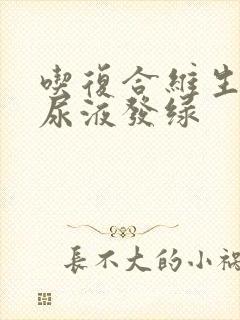 喫復合維生
尿液發綠
長不大的小禍